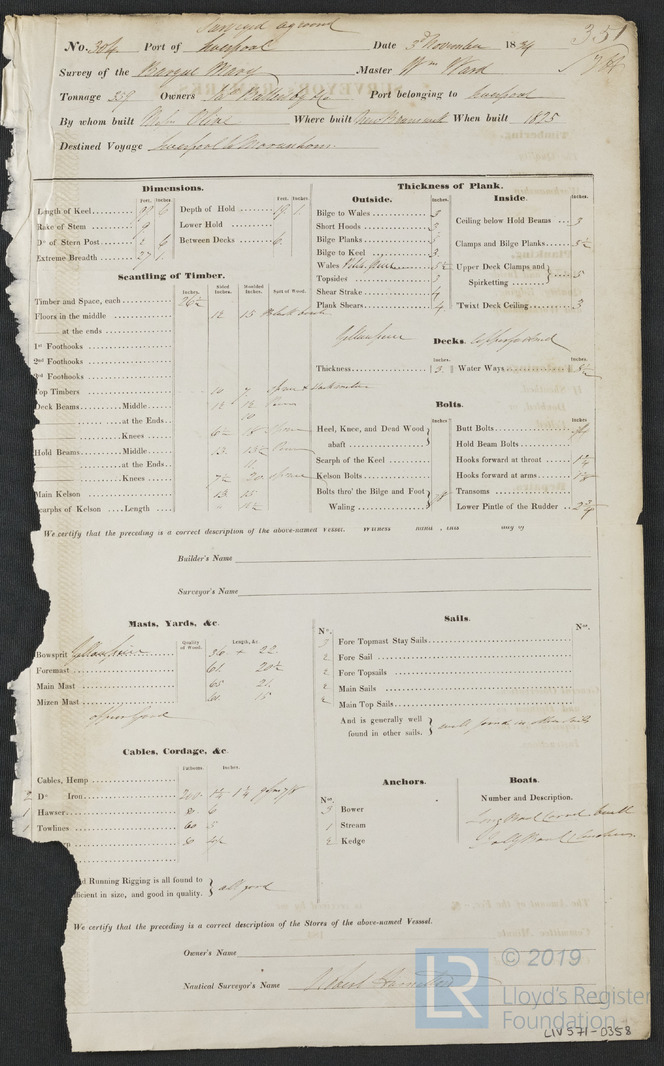 Surveyed aground
351
No. 304 Port of Liverpool Date 3d November 1834
Survey of the Barque Mary Master Wm Ward
Tonnage 339 Owners Port belonging to Liverpool
By whom built Where built New Brunswick When built 1825
Destined Voyage Liverpool to
Dimensions.
Feet. Inches
Length of Keel
Rake of Stem 9
Do of Stern Post 2 6
Extreme Breadth 27 1
Feet. Inches.
Depth of Hold 19. 1.
Lower Hold
Between Decks 6.
Scantling of Timber.
Inches. Sided Inches. Moulded Inches. Sort of Wood.
Timber and Space, each 26½
Floors in the middle 12 15 Black birch
at the ends
1st Foothooks
2nd Foothooks
3rd Foothooks
Top Timbers 10 7 Spruce &
Deck Beams Middle 12 12
at the Ends 10
Knees
Hold Beams Middle 13.
at the Ends 11
Knees 7½ 20
Main Kelson 13 15
Scarphs of Kelson Length
Thickness of Plank.
Outside. Inches.
Bilge to Wales 3
Short Hoods 3
Bilge Planks 3
Bilge to Keel 3.
Wales 5½
Topsides 3
Shear Strake 4
Plank Shears 4
Inside. Inches.
Ceiling below Hold Beams 3
Clamps and Bilge Planks
Upper Deck Clamps and Spirketting 5
'Twixt Deck Ceiling 3
Yellow pine Decks.
Inches.
Thickness 3.
Inches.
Water Ways
Bolts.
Inches
Heel, Knee, and Dead Wood abaft
Scarph of the Keel
Kelson Bolts
Bolts thro' the Bilge and Foot Waling
Inches
Butt Bolts
Hold Beam Bolts
Hooks forward at throat
Hooks forward at arms
Transoms
Lower Pintle of the Rudder 2¾
We certify that the preceding is a correct description of the above-named Vessel. Witness hand, this day of
Builder's Name
Surveyor's Name
Masts, Yards, &c.
Quality of Wood. Length, &c.
Bowsprit Yellow pine 36 + 22.
Foremast 61. 20½
Main Mast 65 21.
Mizen Mast 60. 15
Sails.
No. No.
3 Fore Topmast Stay Sails
2 Fore Sail
2 Fore Topsails
2 Main Sails
2 Main Top Sails
And is generally well found in other sails. well found in other sails
Cables, Cordage, &c.
Fathoms. Inches.
Cables, Hemp
2 Do Iron 200
1 Hawser 80 6
1 Towlines 60 5
Anchors.
No.
3 Bower
1 Stream
2 Kedge
Boats.
Number and Description.
Long Boat Carvel built
Jolly Boat Clincher
d Running Rigging is all found to
fficient in size, and good in quality. all good
We certify that the preceding is a correct description of the Stores of the above-named Vesssel.
Owner's Name
Nautical Surveyor's Name Robert Hamilton
LR © 2019
Lloyd's Register
Foundation
LIV 571-0358